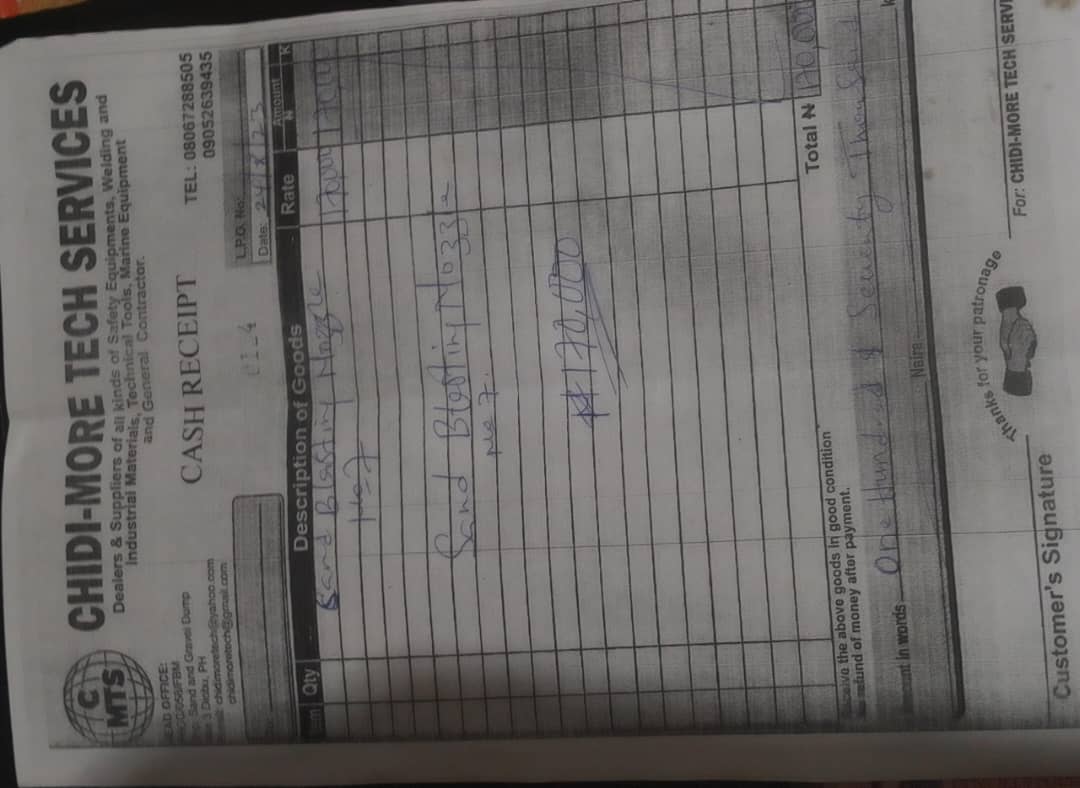 C
MTS
CHIDI-MORE TECH SERVICES
Dealers & Suppliers of all kinds of Safety Equipments, Welding and
Industrial Materials, Technical Tools, Marine Equipment
and General Contractor.
EAD OFFICE:
Sand and Gravel Dump
3 Diobu, PH
chidimoretech@yahoo.com
chidimoretech@gmail.com
CASH RECEIPT
TEL: 08067288505
09052639435
L.P.O. No:
Date: 24/8/23
Qty Description of Goods Rate Amount
₦ K
Sand Blasting Nozzle 170,000
No 7
Sand Blasting Nozzle
No 7.
₦170,000
Total ₦ 170,000
the above goods in good condition
refund of money after payment.
unt in words One Hundred & Seventy Thousand
Naira
Thanks for your patronage
Customer's Signature
For: CHIDI-MORE TECH SERVI